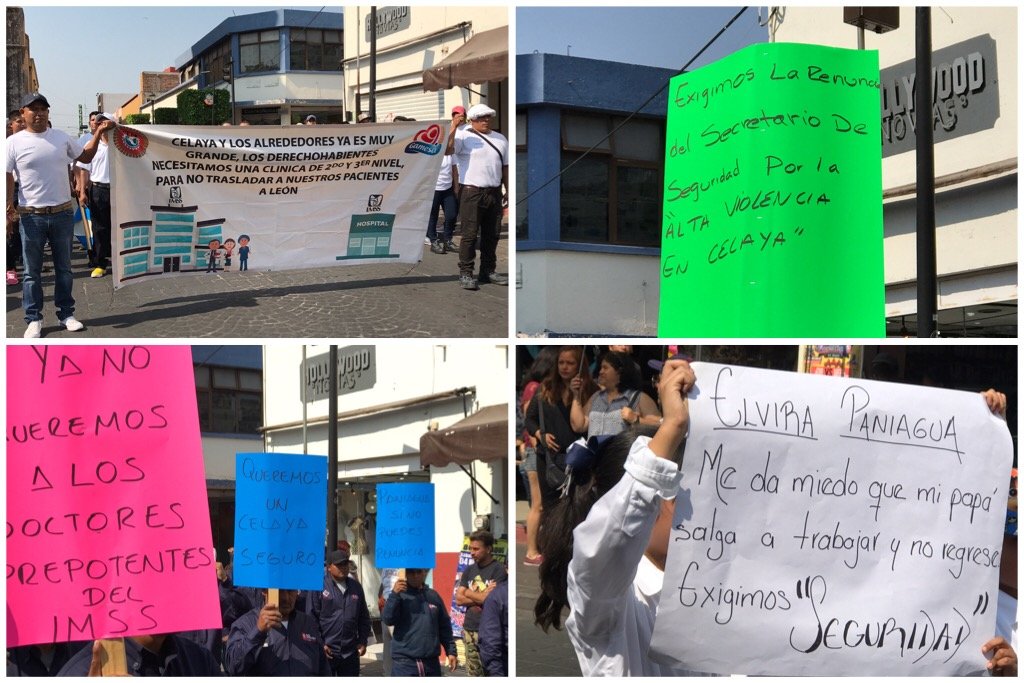 HOLLYWOOD
CELAYA Y LOS ALREDEDORES YA ES MUY
GRANDE, LOS DERECHOHABIENTES
NECESITAMOS UNA CLINICA DE 2DO Y 3ER NIVEL,
PARA NO TRASLADAR A NUESTROS PACIENTES
A LEÓN
Gamesa
IMSS
IMSS
HOSPITAL
Exigimos La Renunc
del Secretario De
Seguridad Por la
"ALTA VIOLENCIA
EN CELAYA"
LLYWOOD
YA NO
UEREMOS
A LOS
DOCTORES
PREPOTENTES
DEL
IMSS
HOLLYWOOD
QUEREMOS
UN
CELAYA
SEGURO
PANIAGUA
SI NO
PUEDES
RENUNCIA
ELVIRA PANIAGUA
Me da miedo que mi papá
salga a trabajar y no regrese
Exigimos "SEGURIDAD"